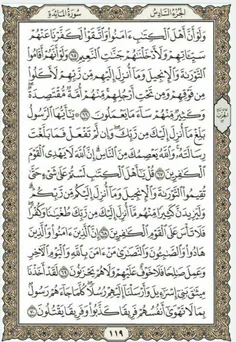 الجزء السادس سورة المائدة
وَلَوْ أَنَّ أَهْلَ الْكِتَابِ ءَامَنُوا وَاتَّقَوْا لَكَفَّرْنَا عَنْهُمْ
سَيِّئَاتِهِمْ وَلَأَدْخَلْنَاهُمْ جَنَّاتِ النَّعِيمِ ٦٥ وَلَوْ أَنَّهُمْ أَقَامُوا
التَّوْرَاةَ وَالْإِنجِيلَ وَمَا أُنزِلَ إِلَيْهِم مِّن رَّبِّهِمْ لَأَكَلُوا
مِن فَوْقِهِمْ وَمِن تَحْتِ أَرْجُلِهِم مِّنْهُمْ أُمَّةٌ مُّقْتَصِدَةٌ
وَكَثِيرٌ مِّنْهُمْ سَاءَ مَا يَعْمَلُونَ ٦٦ يَا أَيُّهَا الرَّسُولُ
بَلِّغْ مَا أُنزِلَ إِلَيْكَ مِن رَّبِّكَ وَإِن لَّمْ تَفْعَلْ فَمَا بَلَّغْتَ
رِسَالَتَهُ وَاللَّهُ يَعْصِمُكَ مِنَ النَّاسِ إِنَّ اللَّهَ لَا يَهْدِي الْقَوْمَ
الْكَافِرِينَ ٦٧ قُلْ يَا أَهْلَ الْكِتَابِ لَسْتُمْ عَلَى شَيْءٍ حَتَّى
تُقِيمُوا التَّوْرَاةَ وَالْإِنجِيلَ وَمَا أُنزِلَ إِلَيْكُم مِّن رَّبِّكُمْ
وَلَيَزِيدَنَّ كَثِيرًا مِّنْهُم مَّا أُنزِلَ إِلَيْكَ مِن رَّبِّكَ طُغْيَانًا وَكُفْرًا
فَلَا تَأْسَ عَلَى الْقَوْمِ الْكَافِرِينَ ٦٨ إِنَّ الَّذِينَ ءَامَنُوا وَالَّذِينَ
هَادُوا وَالصَّابِئُونَ وَالنَّصَارَى مَنْ ءَامَنَ بِاللَّهِ وَالْيَوْمِ الْآخِرِ
وَعَمِلَ صَالِحًا فَلَا خَوْفٌ عَلَيْهِمْ وَلَا هُمْ يَحْزَنُونَ ٦٩ لَقَدْ أَخَذْنَا
مِيثَاقَ بَنِي إِسْرَائِيلَ وَأَرْسَلْنَا إِلَيْهِمْ رُسُلًا كُلَّمَا جَاءَهُمْ رَسُولٌ
بِمَا لَا تَهْوَى أَنفُسُهُمْ فَرِيقًا كَذَّبُوا وَفَرِيقًا يَقْتُلُونَ ٧٠
١١٩